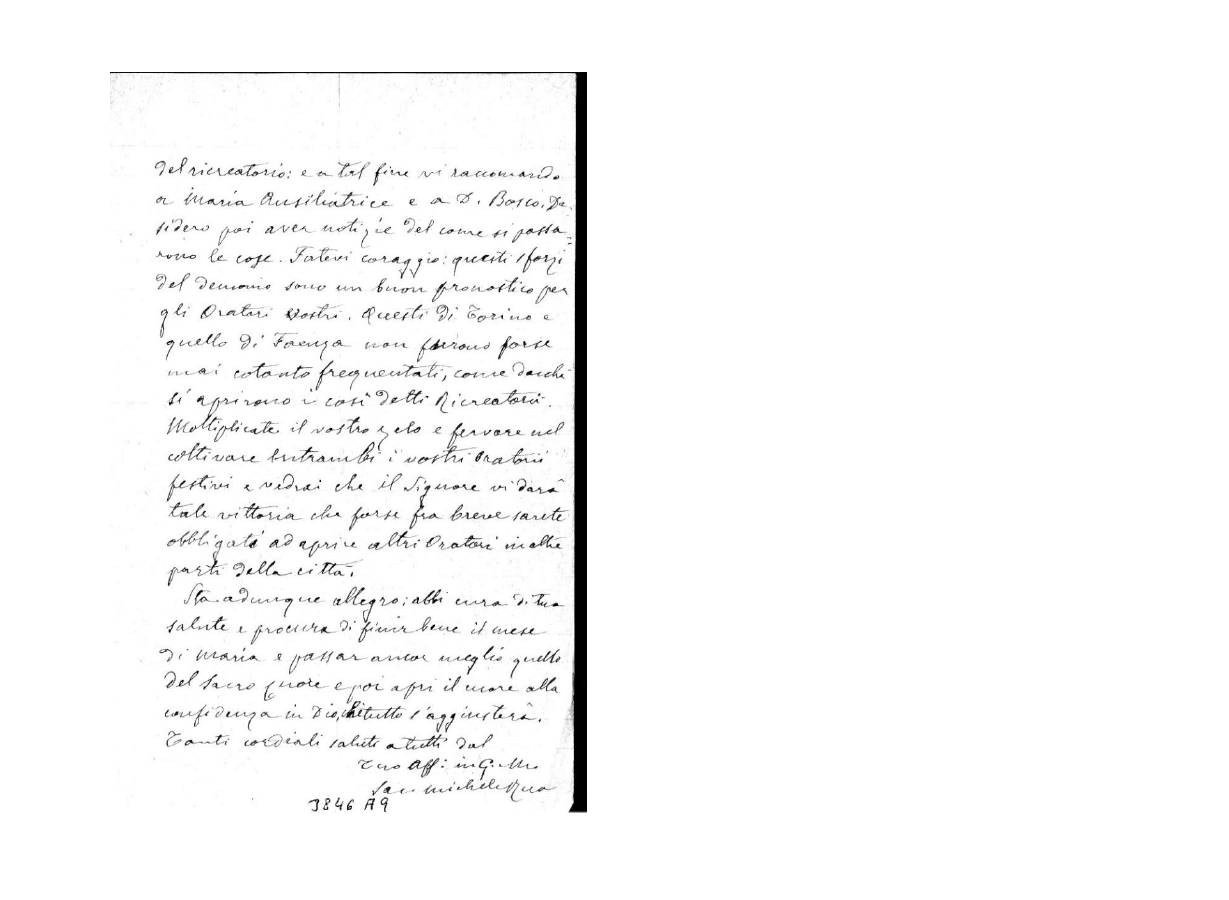 del ricreatorio: e a tal fine vi raccomando
a Maria Ausiliatrice e a D. Bosco. De-
sidero poi aver notizie del come si passa-
rono le cose. Fatevi coraggio: questi sforzi
del demonio sono un buon pronostico per
gli Oratori vostri. Questi di Torino e
quello di Faenza non furono forse
mai cotanto frequentati, come dacchè
si aprirono i così detti Ricreatorii.
Moltiplicate il vostro zelo e fervore nel
coltivare entrambi i vostri Oratorii
festivi e vedrai che il Signore vi darà
tale vittoria che forse fra breve sarete
obbligati ad aprire altri Oratori in altre
parti della città.
Sta adunque allegro; abbi cura di tua
salute e procura di finir bene il mese
di Maria e passar ancor meglio quello
del Sacro Cuore e poi apri il cuore alla
confidenza in Dio, chè tutto s'aggiusterà.
Tanti cordiali saluti a tutti dal
Tuo Aff: in G. e M.
Sac. Michele Rua
3846 A9